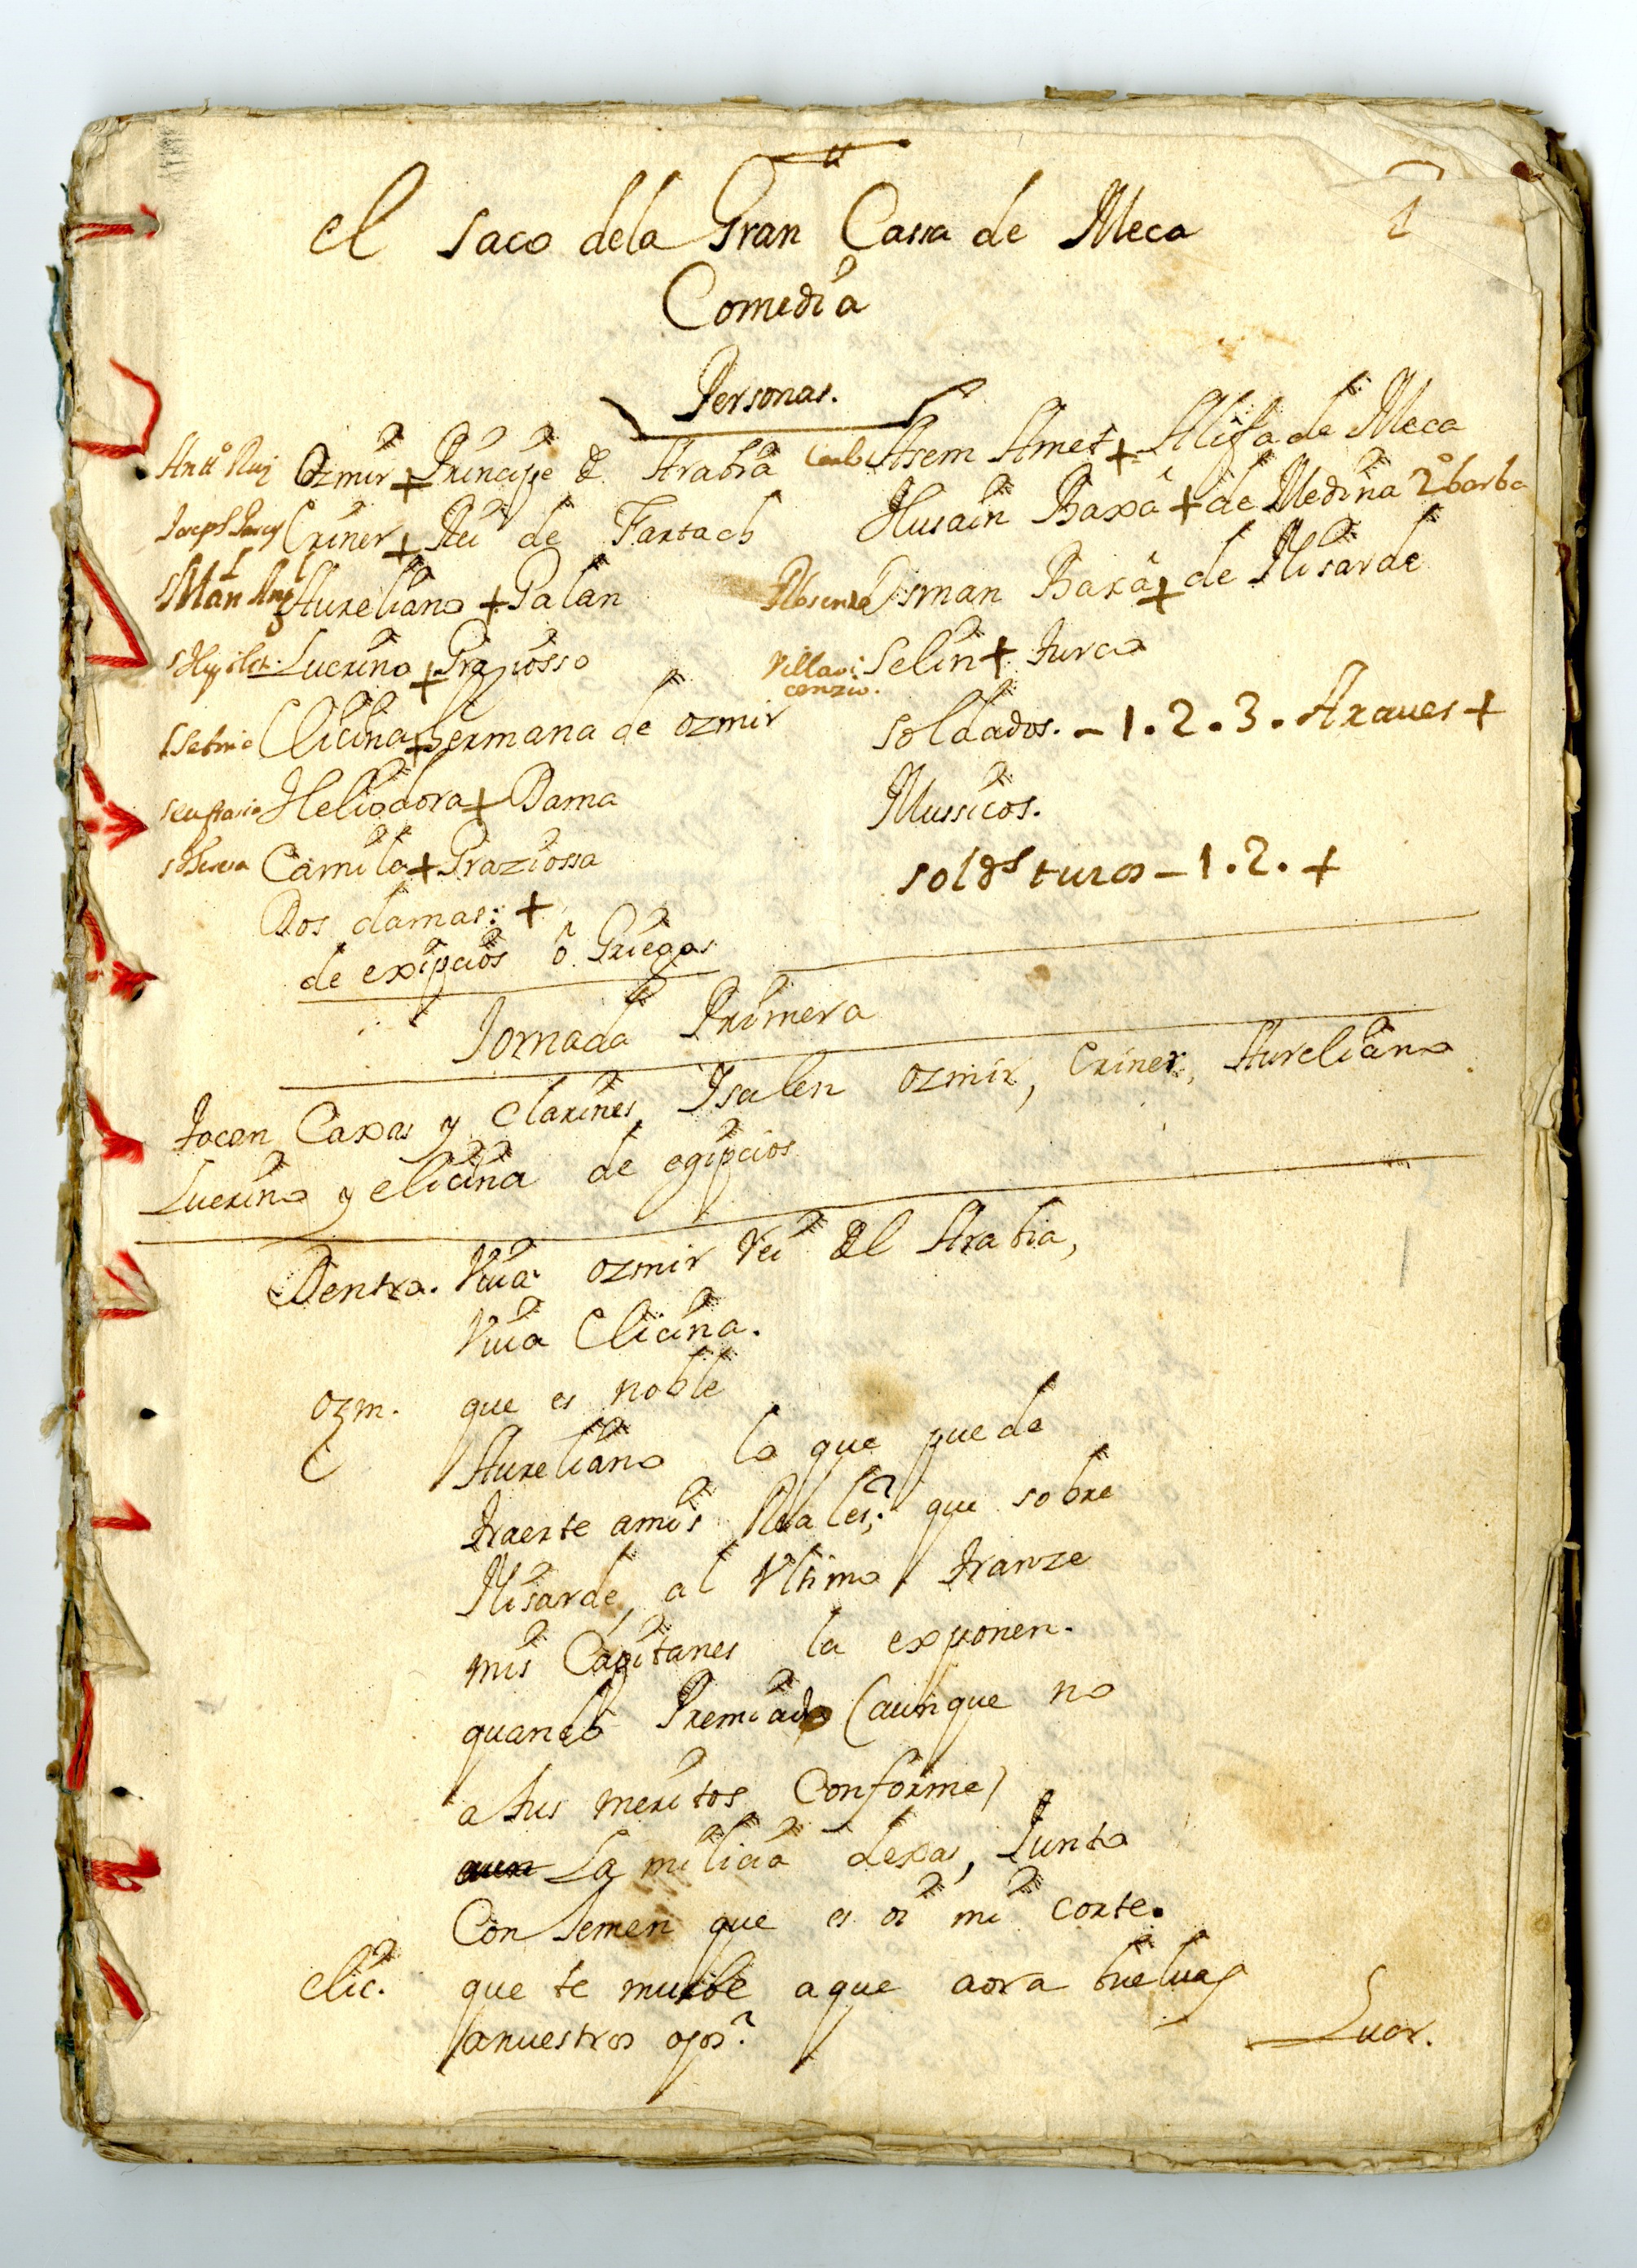 1
el saco dela Gran Cassa de Meca
Comedia
Personas.
Antº Ruiz Ozmir + Principe de Arabia
Joseph Criner + Rei de Fartach
Man Aureliano + Galan
Lucrino + Graziosso
Clicina + hermana de ozmir
Heliodora + Dama
Camila + Graziossa
Dos damas: +
de exipcios ô Griegos
Asem Amet + Alifa de Meca
Husain Baxâ + de Medina 2º barba
Plasenzia Osman Baxâ + de Misarde
Villavicenzio. Selin + turco
soldados. - 1. 2. 3. Araues +
Mussicos.
sold.s turcos - 1. 2. +
Jornada Primera
Tocan Caxas y Clarines, Y salen ozmir, Criner, Aureliano
Lucrino y clicina de egipcios
Dentro. Viua ozmir Rei del Arabia,
Viua Clicina.
Ozm. que es noble
Aureliano lo que puede
traerte amis Reales? que sobre
Misarde, al Vltimo tranze
mis Capitanes la exponen.
quando Premiado (aunque no
a tus meritos Conforme)
aun La milicia dexas, Junto
Con Iemen que es oi mi corte.
Clic. que te muebe aque aora buelvas
anuestros ojos?
Lucr.